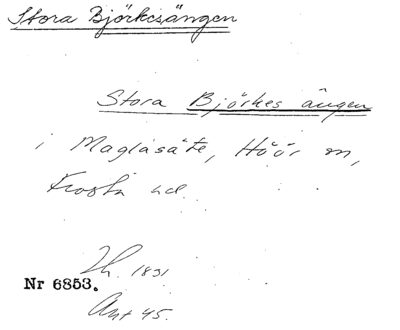 Stora Björkesängen
Stora Björkes ängen
i Maglasäte, Höör sn,
Frosta hd
Sk. 1831
Nr 6853.
Ant 45.